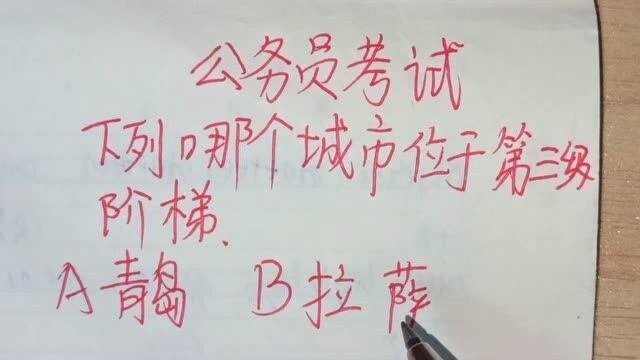 公务员考试
下列哪个城市位于第三级
阶梯、
A青岛 B拉萨